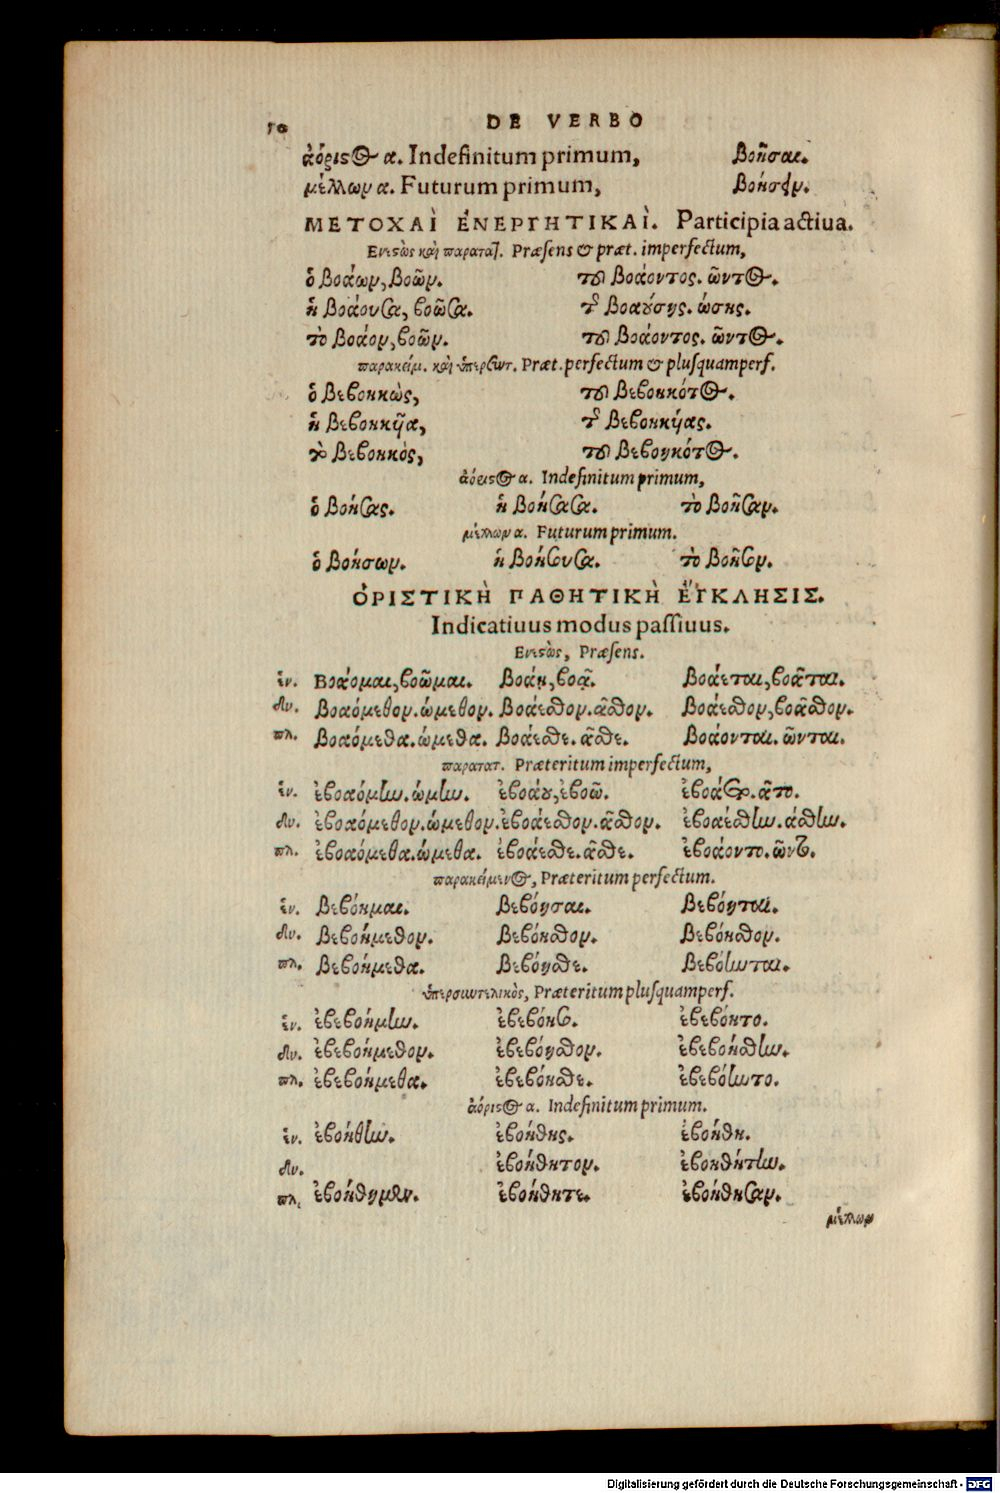 50 DE VERBO
ἀόριστος α. Indefinitum primum, Βοῆσαι.
μέλλων α. Futurum primum, Βοήσειν.
ΜΕΤΟΧΑῚ ἘΝΕΡΓΗΤΙΚΑῚ. Participia actiua.
Ενεστὼς καὶ παρατατ. Præsens & præt. imperfectum,
ὁ Βοάων, Βοῶν. τοῦ Βοάοντος. ῶντος.
ἡ Βοάουσα, βοῶσα. τῆς Βοαούσης. ώσης.
τὸ Βοάον, βοῶν. τοῦ Βοάοντος. ῶντος.
παρακείμ. καὶ ὑπερσυντ. Præt. perfectum & plusquamperf.
ὁ Βεβοηκὼς, τοῦ Βεβοηκότος.
ἡ Βεβοηκῆα, τῆς Βεβοηκήας.
τὸ Βεβοηκὸς, τοῦ Βεβοηκότος.
ἀόριστος α. Indefinitum primum,
ὁ Βοήσας. ἡ Βοήσασα. τὸ Βοῆσαν.
μέλλων α. Futurum primum.
ὁ Βοήσων. ἡ Βοήσουσα. τὸ Βοῆσον.
ὉΡΙΣΤΙΚῊ ΠΑΘΗΤΙΚῊ ἜΓΚΛΗΣΙΣ.
Indicatiuus modus passiuus.
Ενεστὼς, Præsens.
ἑν. Βοάομαι, βοῶμαι. Βοάῃ, βοᾷ. Βοάεται, βοᾶται.
δυ. Βοαόμεθον. ώμεθον. Βοάεσθον. ᾶσθον. Βοάεσθον, βοᾶσθον.
πλ. Βοαόμεθα. ώμεθα. Βοάεσθε. ᾶσθε. Βοάονται. ῶνται.
παρατατ. Præteritum imperfectum,
ἑν. ἐβοαόμην. ώμην. ἐβοάου, ἐβοῶ. ἐβοάετο. ᾶτο.
δυ. ἐβοαόμεθον. ώμεθον. ἐβοάεσθον. ᾶσθον. ἐβοαέσθην. άσθην.
πλ. ἐβοαόμεθα. ώμεθα. ἐβοάεσθε. ᾶσθε. ἐβοάοντο. ῶντο.
παρακείμενος, Præteritum perfectum.
ἑν. Βεβόημαι. Βεβόησαι. Βεβόηται.
δυ. Βεβοήμεθον. Βεβόησθον. Βεβόησθον.
πλ. Βεβοήμεθα. Βεβόησθε. Βεβόηνται.
ὑπερσυντελικὸς, Præteritum plusquamperf.
ἑν. ἐβεβοήμην. ἐβεβόησο. ἐβεβόητο.
δυ. ἐβεβοήμεθον. ἐβεβόησθον. ἐβεβοήσθην.
πλ. ἐβεβοήμεθα. ἐβεβόησθε. ἐβεβόηντο.
ἀόριστος α. Indefinitum primum.
ἑν. ἐβοήθην. ἐβοήθης. ἐβοήθη.
δυ. ἐβοήθητον. ἐβοηθήτην.
πλ. ἐβοήθημεν. ἐβοήθητε. ἐβοήθησαν.
μέλλων
Digitalisierung gefördert durch die Deutsche Forschungsgemeinschaft - DFG